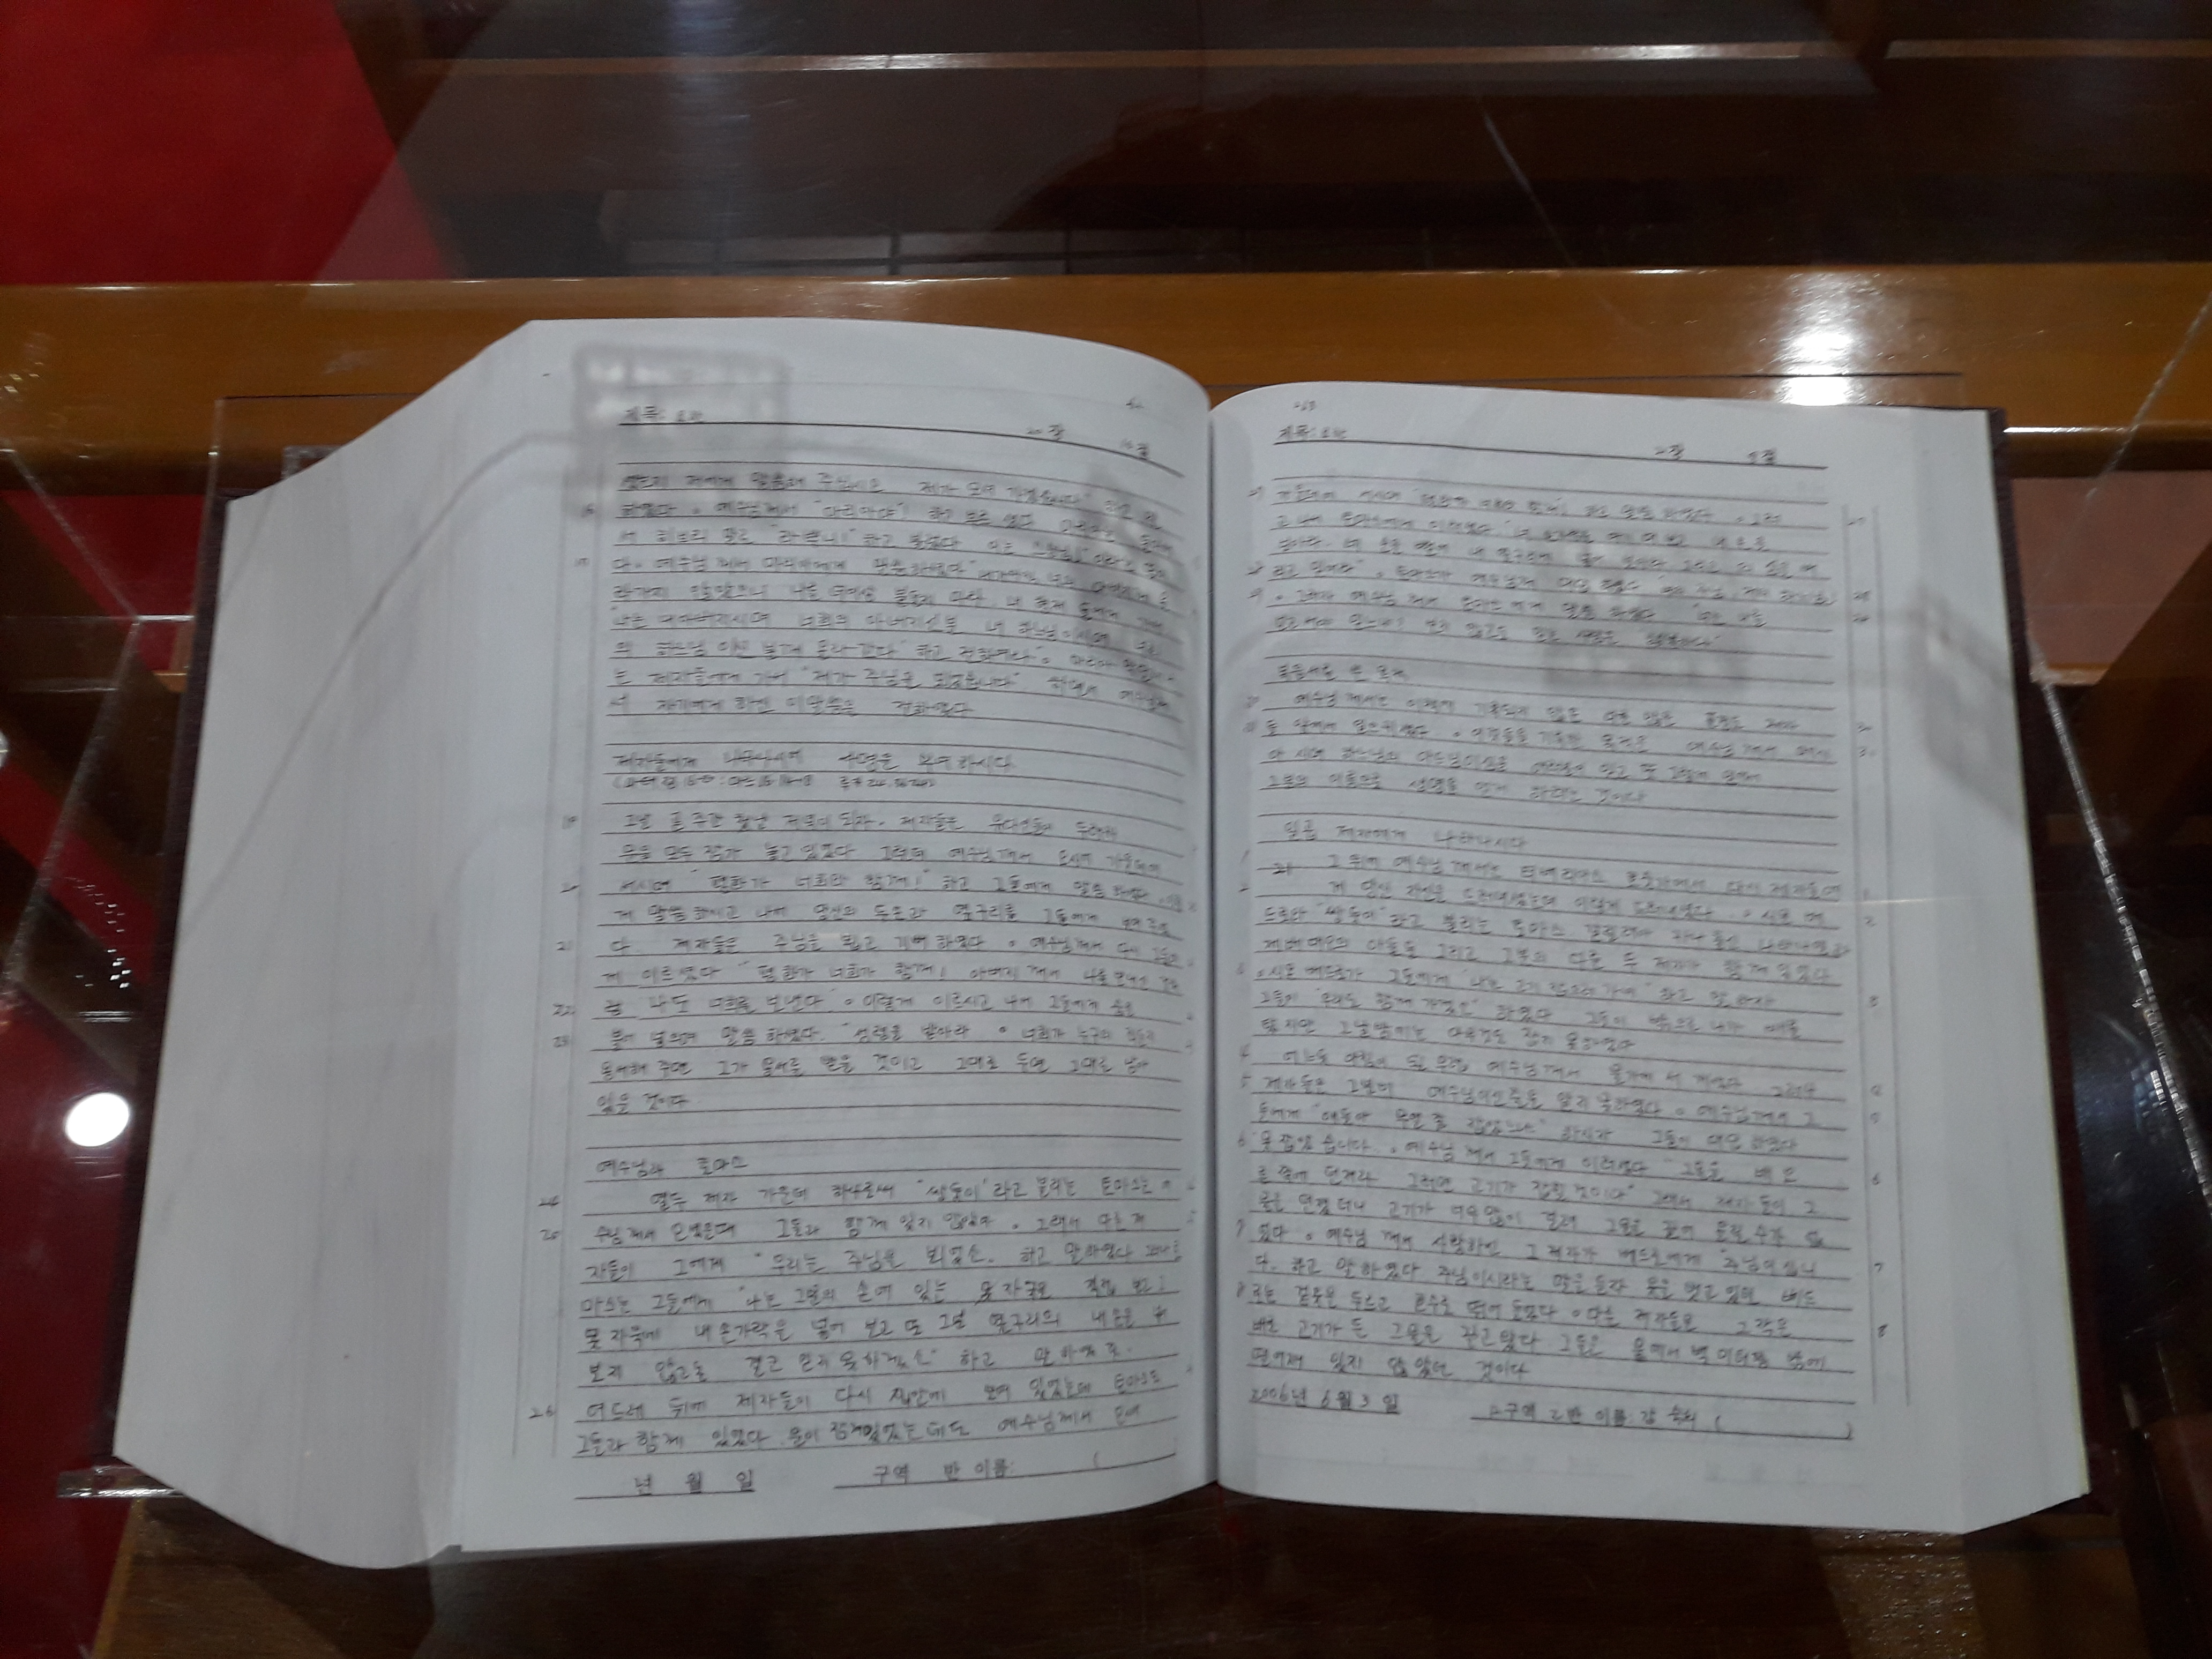 제목: 요한 20장
하였다. 예수님께서 "마리아야!" 하고 부르셨다
서 히브리 말로 "라뿌니!" 하고 불렀다 이는
다. 예수님께서 마리아에게 말씀하셨다
라가지 않았으니 나를 더이상 붙들지 마라. 내 형제들에게
나는 내아버지시며 너희의 아버지신분 내 하느님이시며 너희
의 하느님 이신 분께 올라 간다" 하고 전하여라".
는 제자들에게 가서 "제가 주님을 뵈었습니다". 하면서 예수님께
서 자기에게 하신 이말씀을 전하였다
제자들에게 나타나시어 사명을 부여하시다
19 그날 곧 주간 첫날 저녁이 되자. 제자들은 유다인들이 두려워
문을 모두 잠가 놓고 있었다 그런데 예수님께서 오시어 가운데에
20 서시며 "평화가 너희와 함께!" 하고 그들에게 말씀하셨다
게 말씀하시고 나서 당신의 두손과 옆구리를 그들에게 보여 주셨
21 다. 제자들은 주님을 뵙고 기뻐하였다. 예수님께서 다시 그들에
게 이르셨다 "평화가 너희와 함께! 아버지께서 나를 보내신 것처
22 럼 나도 너희를 보낸다". 이렇게 이르시고 나서 그들에게 숨을
23 불어 넣으며 말씀하셨다. "성령을 받아라. 너희가 누구의 죄든지
용서해 주면 그가 용서를 받을 것이고 그대로 두면 그대로 남아
있을 것이다
예수님과 토마스
24 열두 제자 가운데 하나로써 "쌍둥이'라고 불리는 토마스는 예
25 수님께서 오셨을때 그들과 함께 있지 않았다. 그래서 다른 제
자들이 그에게 "우리는 주님을 뵈었소. 하고 말하였다
마스는 그들에게 "나는 그분의 손에 있는 못자국을 직접 보고
못자국에 내 손가락을 넣어 보고 또 그분 옆구리에 내 손을 넣어
보지 않고는 결코 믿지 못하겠소" 하고 말하였다.
26 여드레 뒤에 제자들이 다시 집안에 모여 있었는데 토마스도
그들과 함께 있었다. 문이 잠겨있었는데도 예수님께서 오시어
년 월 일 구역 반 이름: (
제목: 요한
가운데에 서시며 "평화가 너희와 함께! 하고 말씀 하셨다. 그리
고 나서 토마스에게 이르셨다
29 . 그러자 예수님께서 토마스에게 말씀 하셨다
복음서를 쓴 목적
30 예수님께서는 이책에 기록되지 않은 다른 많은 표징도 제자
31 들 앞에서 일으키셨다. 이것들을 기록한 목적은 예수님께서 메시
아 시며 하느님의 아드님이심을 여러분이 믿고 또 그렇게 믿어서
그분의 이름으로 생명을 얻게 하려는 것이다
일곱 제자에게 나타나시다
1 21 그 뒤에 예수님께서는 티베리아스 호숫가에서 다시 제자들에
2 게 당신 자신을 드러내셨는데 이렇게 드러내셨다. 시몬 베
드로와 "쌍둥이"라고 불리는 토마스 갈릴래아 카나 출신 나타나엘과
제베대오의 아들들 그리고 그분의 다른 두 제자가 함께 있었다
3 시몬 베드로가 그들에게 "나는 고기 잡으러 가네" 하고 말하자
그들이 "우리도 함께 가겠소" 하였다 그들이 밖으로 나가 배를
탔지만 그날밤에는 아무것도 잡지 못하였다
4 어느덧 아침이 될 무렵 예수님께서 물가에 서 계셨다 그러나
5 제자들은 그분이 예수님이신줄을 알지 못하였다. 예수님께서 그
들에게 "얘들아 무얼 좀 잡았느냐" 하시자 그들이 대답 하였다
6 "못 잡았습니다. 예수님께서 그들에게 이르셨다 "그물을 배 오
른 쪽에 던져라 그러면 고기가 잡힐 것이다" 그래서 제자들이 그
물을 던졌더니 고기가 너무 많이 걸려 그물을 끌어 올릴 수가 없
7 었다. 예수님께서 사랑하신 그 제자가 베드로에게 "주님이십니
다. 하고 말하였다 주님이시라는 말을 듣자 옷을 벗고 있던 베드
8 로는 겉옷을 두르고 호수로 뛰어 들었다. 다른 제자들은 그 작은
배로 고기가 든 그물을 끌고 왔다 그들은 물에서 백 미터쯤 밖에
떨어져 있지 않았던 것이다
2006년 6월 3일 구역 2반 이름: 강 (